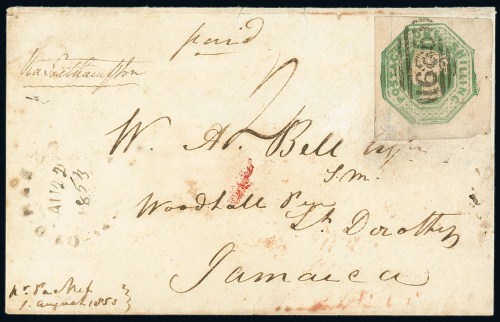 paid
Via Southampton
POSTAGE ONE SHILLING
W. A. Bell Esqr
S.M.
Woodhall Pen
St. Dorothy
Jamaica
AU 22
1853
pr. Packet
1. august 1853